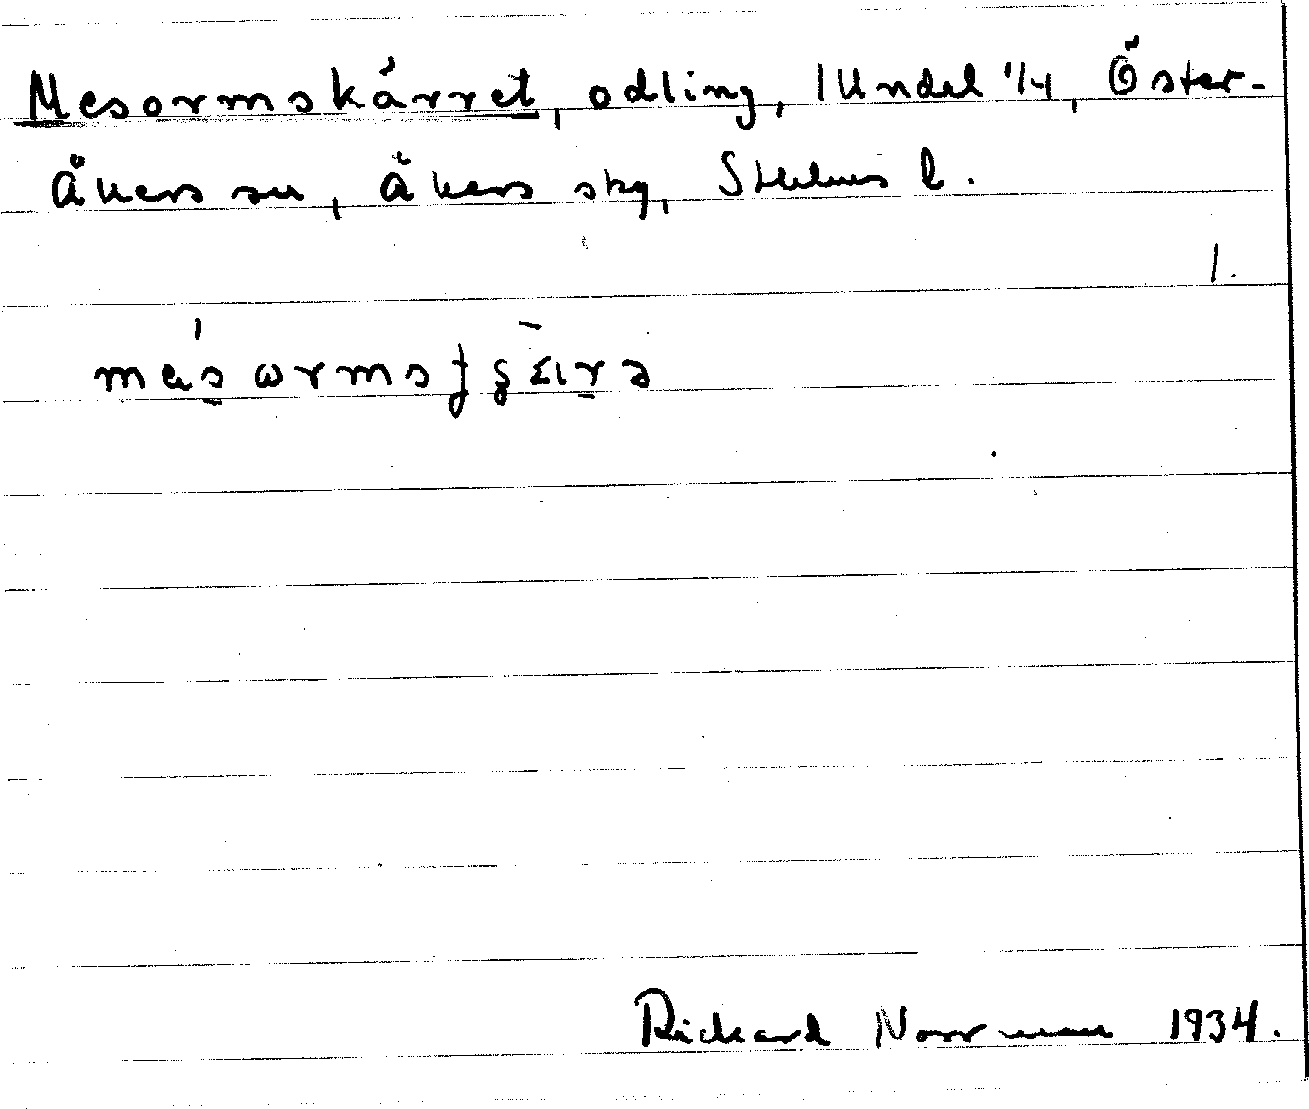 Mesormskärret, odling, Undal 1/4, Öster-
Åkers sn, Åkers skg, Sthlms l.
1.
Rickard Norrman 1934.